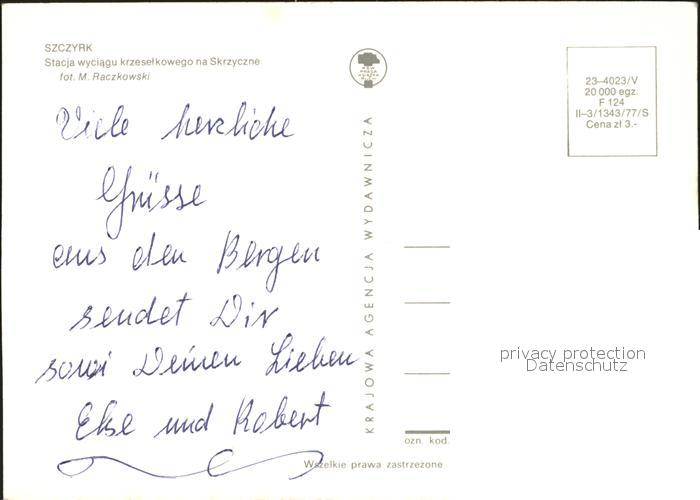 SZCZYRK
Stacja wyciągu krzesełkowego na Skrzyczne
fot. M. Raczkowski
Viele herzliche
Grüsse
aus den Bergen
sendet Dir
sowi Deinen Lieben
Else und Robert
KRAJOWA AGENCJA WYDAWNICZA
23–4023/V
20 000 egz.
F 124
II–3/1343/77/S
Cena zł 3.-
privacy protection
Datenschutz
ozn. kod.
Wszelkie prawa zastrzeżone